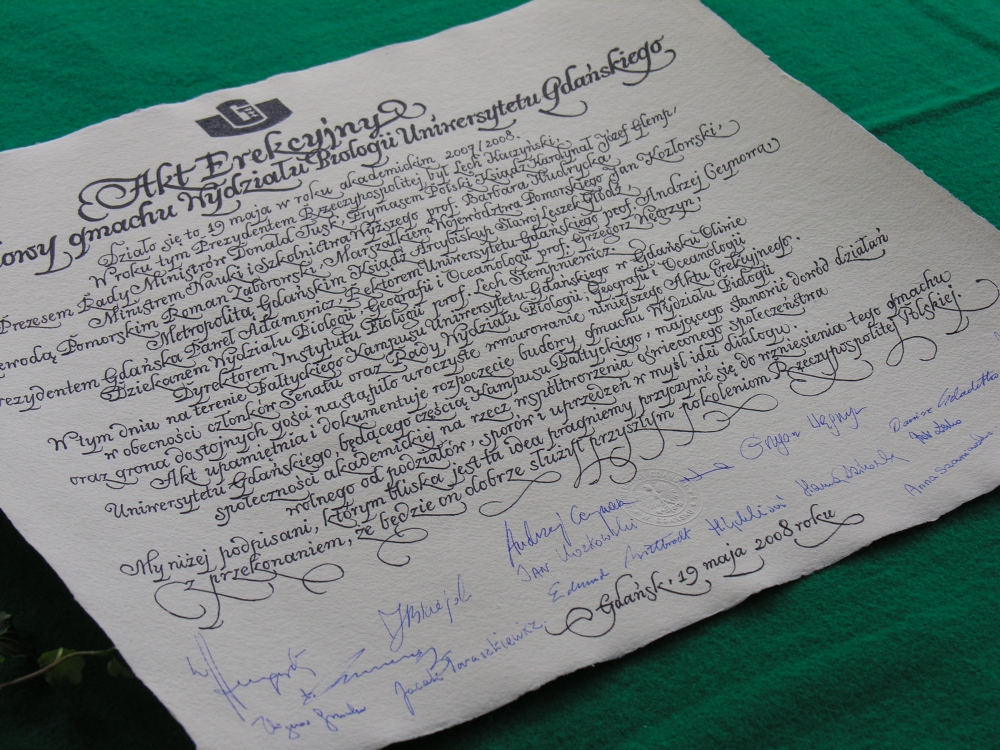 Akt Erekcyjny
owy gmachu Wydziału Biologii Uniwersytetu Gdańskiego
Działo się to 19 maja w roku akademickim 2007/2008.
W roku tym Prezydentem Rzeczypospolitej był Lech Kaczyński,
Prezesem Rady Ministrów Donald Tusk, Prymasem Polski Ksiądz Kardynał Józef Glemp,
Ministrem Nauki i Szkolnictwa Wyższego prof. Barbara Kudrycka,
ewodą Pomorskim Roman Zaborowski, Marszałkiem Województwa Pomorskiego Jan Kozłowski,
Metropolitą Gdańskim Ksiądz Arcybiskup Sławoj Leszek Głódź,
rezydentem Gdańska Paweł Adamowicz, Rektorem Uniwersytetu Gdańskiego prof. Andrzej Ceynowa
Dziekanem Wydziału Biologii, Geografii i Oceanologii prof. Grzegorz Węgrzyn,
Dyrektorem Instytutu Biologii prof. Lech Stempniewicz
W tym dniu na terenie Bałtyckiego Kampusu Uniwersytetu Gdańskiego w Gdańsku Oliwie
w obecności członków Senatu oraz Rady Wydziału Biologii, Geografii i Oceanologii
oraz grona dostojnych gości nastąpiło uroczyste wmurowanie niniejszego Aktu Erekcyjnego.
Akt upamiętnia i dokumentuje rozpoczęcie budowy gmachu Wydziału Biologii
Uniwersytetu Gdańskiego, będącego częścią Kampusu Bałtyckiego, mającego stanowić dowód działań
społeczności akademickiej na rzecz współtworzenia oświeconego społeczeństwa
wolnego od podziałów, sporów i uprzedzeń w myśl idei dialogu.
My niżej podpisani, którym bliska jest ta idea pragniemy przyczynić się do wzniesienia tego gmachu
z przekonaniem, że będzie on dobrze służył przyszłym pokoleniom Rzeczypospolitej Polskiej.
Andrzej Ceynowa
Jan Kozłowski
Edmund Wittbrodt
Anna
Jacek Taraszkiewicz
Gdańsk, 19 maja 2008 roku